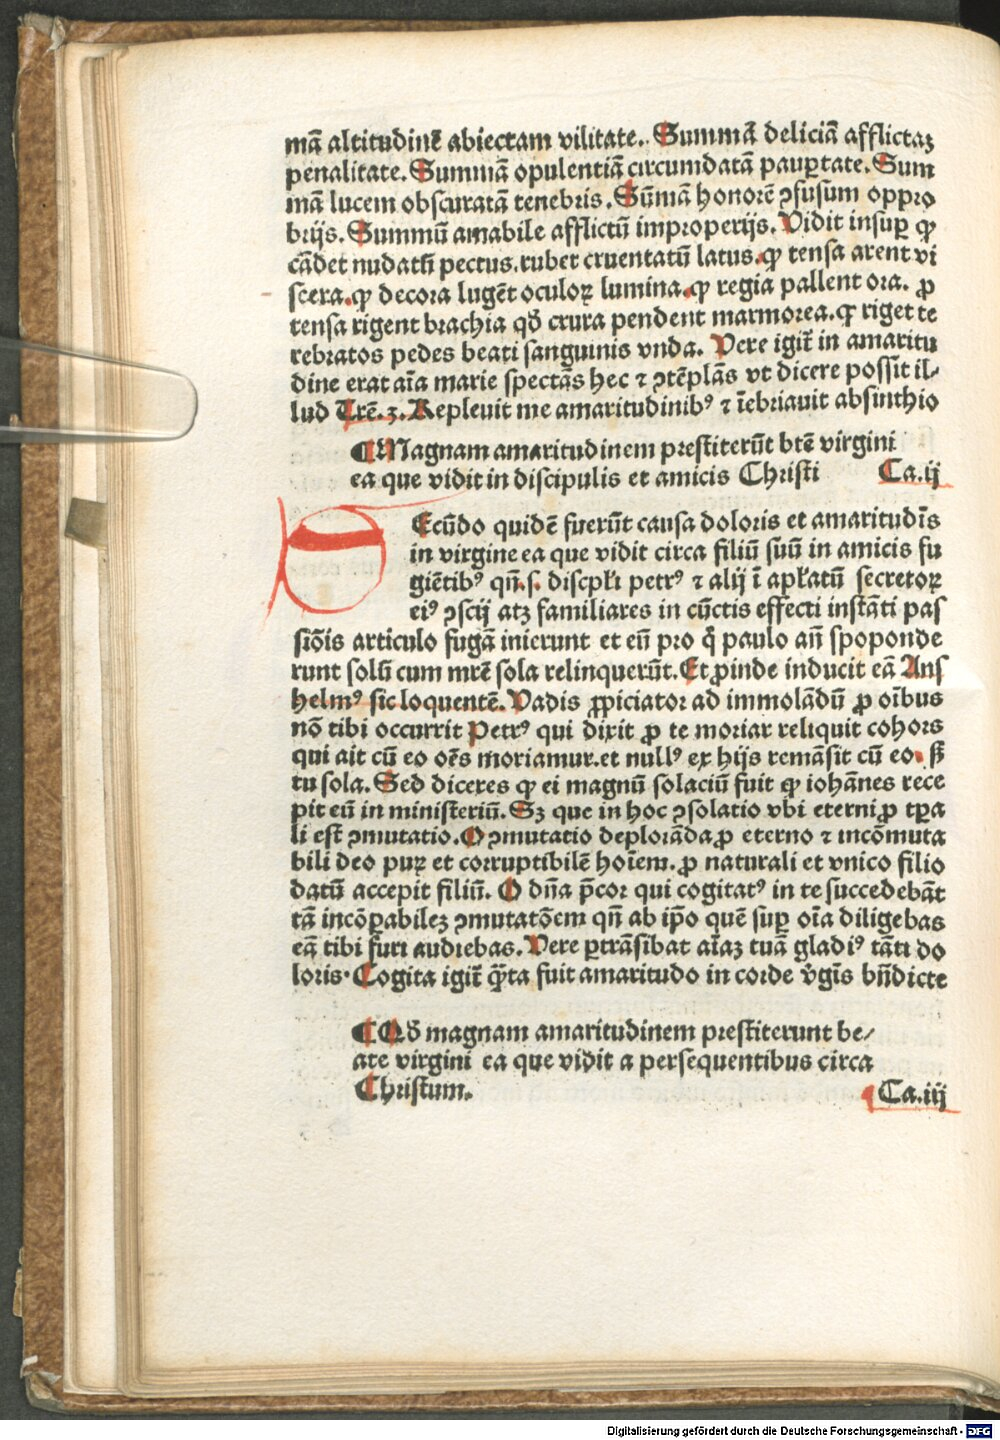 mā altitudinē abiectam vilitate. Summā deliciā afflictaȝ
penalitate. Summā opulentiā circumdatā paup̱tate. Sum
mā lucem obscuratā tenebris. Sūmā honorē ꝯfusum oppro
brijs. Summū amabile afflictū improperijs. Vidit insup̱ ꝙ
cādet nudatū pectus. rubet cruentatū latus. ꝙ tensa arent vi
scera. ꝙ decora lugēt oculoꝝ lumina. ꝙ regia pallent ora. ꝓ
tensa rigent brachia qď crura pendent marmorea. ꝙ riget te
rebratos pedes beati sanguinis vnda. Vere igit̄ in amaritu
dine erat aīa marie spectās hec ⁊ ꝯtēplās vt dicere possit il⸗
lud Trē.3. Repleuit me amaritudinibꝰ ⁊ īebriauit absinthio
¶ Magnam amaritudinem prestiterūt btē virgini
ea que vidit in discipulis et amicis Christi Ca.ij
SEcūdo quidē fuerūt causa doloris et amaritudīs
in virgine ea que vidit circa filiū suū in amicis fu
giētibꝰ qn̄.s. discpl̄i petrꝰ ⁊ alij ī apl̄atū secretoꝝ
eiꝰ ꝯscij atȝ familiares in cūctis effecti instāti pas
siōis articulo fugā inierunt et eū pro q̄ paulo an̄ spoponde
runt solū cum mrē sola relinquerūt. Et ꝓinde inducit eā Ans
helmꝰ sic loquentē. Vadis ꝓpiciator ad immolādū ꝓ oībus
nō tibi occurrit Petrꝰ qui dixit ꝓ te moriar reliquit cohors
qui ait cū eo oēs moriamur. et nullꝰ ex hijs remāsit cū eo. ß̄
tu sola. Sed diceres ꝙ ei magnū solaciū fuit ꝙ iohānes rece
pit eū in ministeriū. Sȝ que in hoc ꝯsolatio vbi eterni ꝓ tp̄a
li est ꝯmutatio. O ꝯmutatio deplorāda ꝓ eterno ⁊ incōmuta
bili deo puꝝ et corruptibilē hoīem. ꝓ naturali et vnico filio
datū accepit filiū. O dn̄a p̄cor qui cogitatꝰ in te succedebāt
tā incōp̱abileȝ ꝯmutatōem qn̄ ab ip̄o quē sup̱ oīa diligebas
eā tibi furi audiebas. Vere p̱trāsibat aīaȝ tuā gladiꝰ tāti do
loris. Cogita igit̄ q̄ta fuit amaritudo in corde v̄gīs bn̄dicte
¶ Qď magnam amaritudinem prestiterunt be⸗
ate virgini ea que vidit a persequentibus circa
Christum. Ca.iij
Digitalisierung gefördert durch die Deutsche Forschungsgemeinschaft - DFG